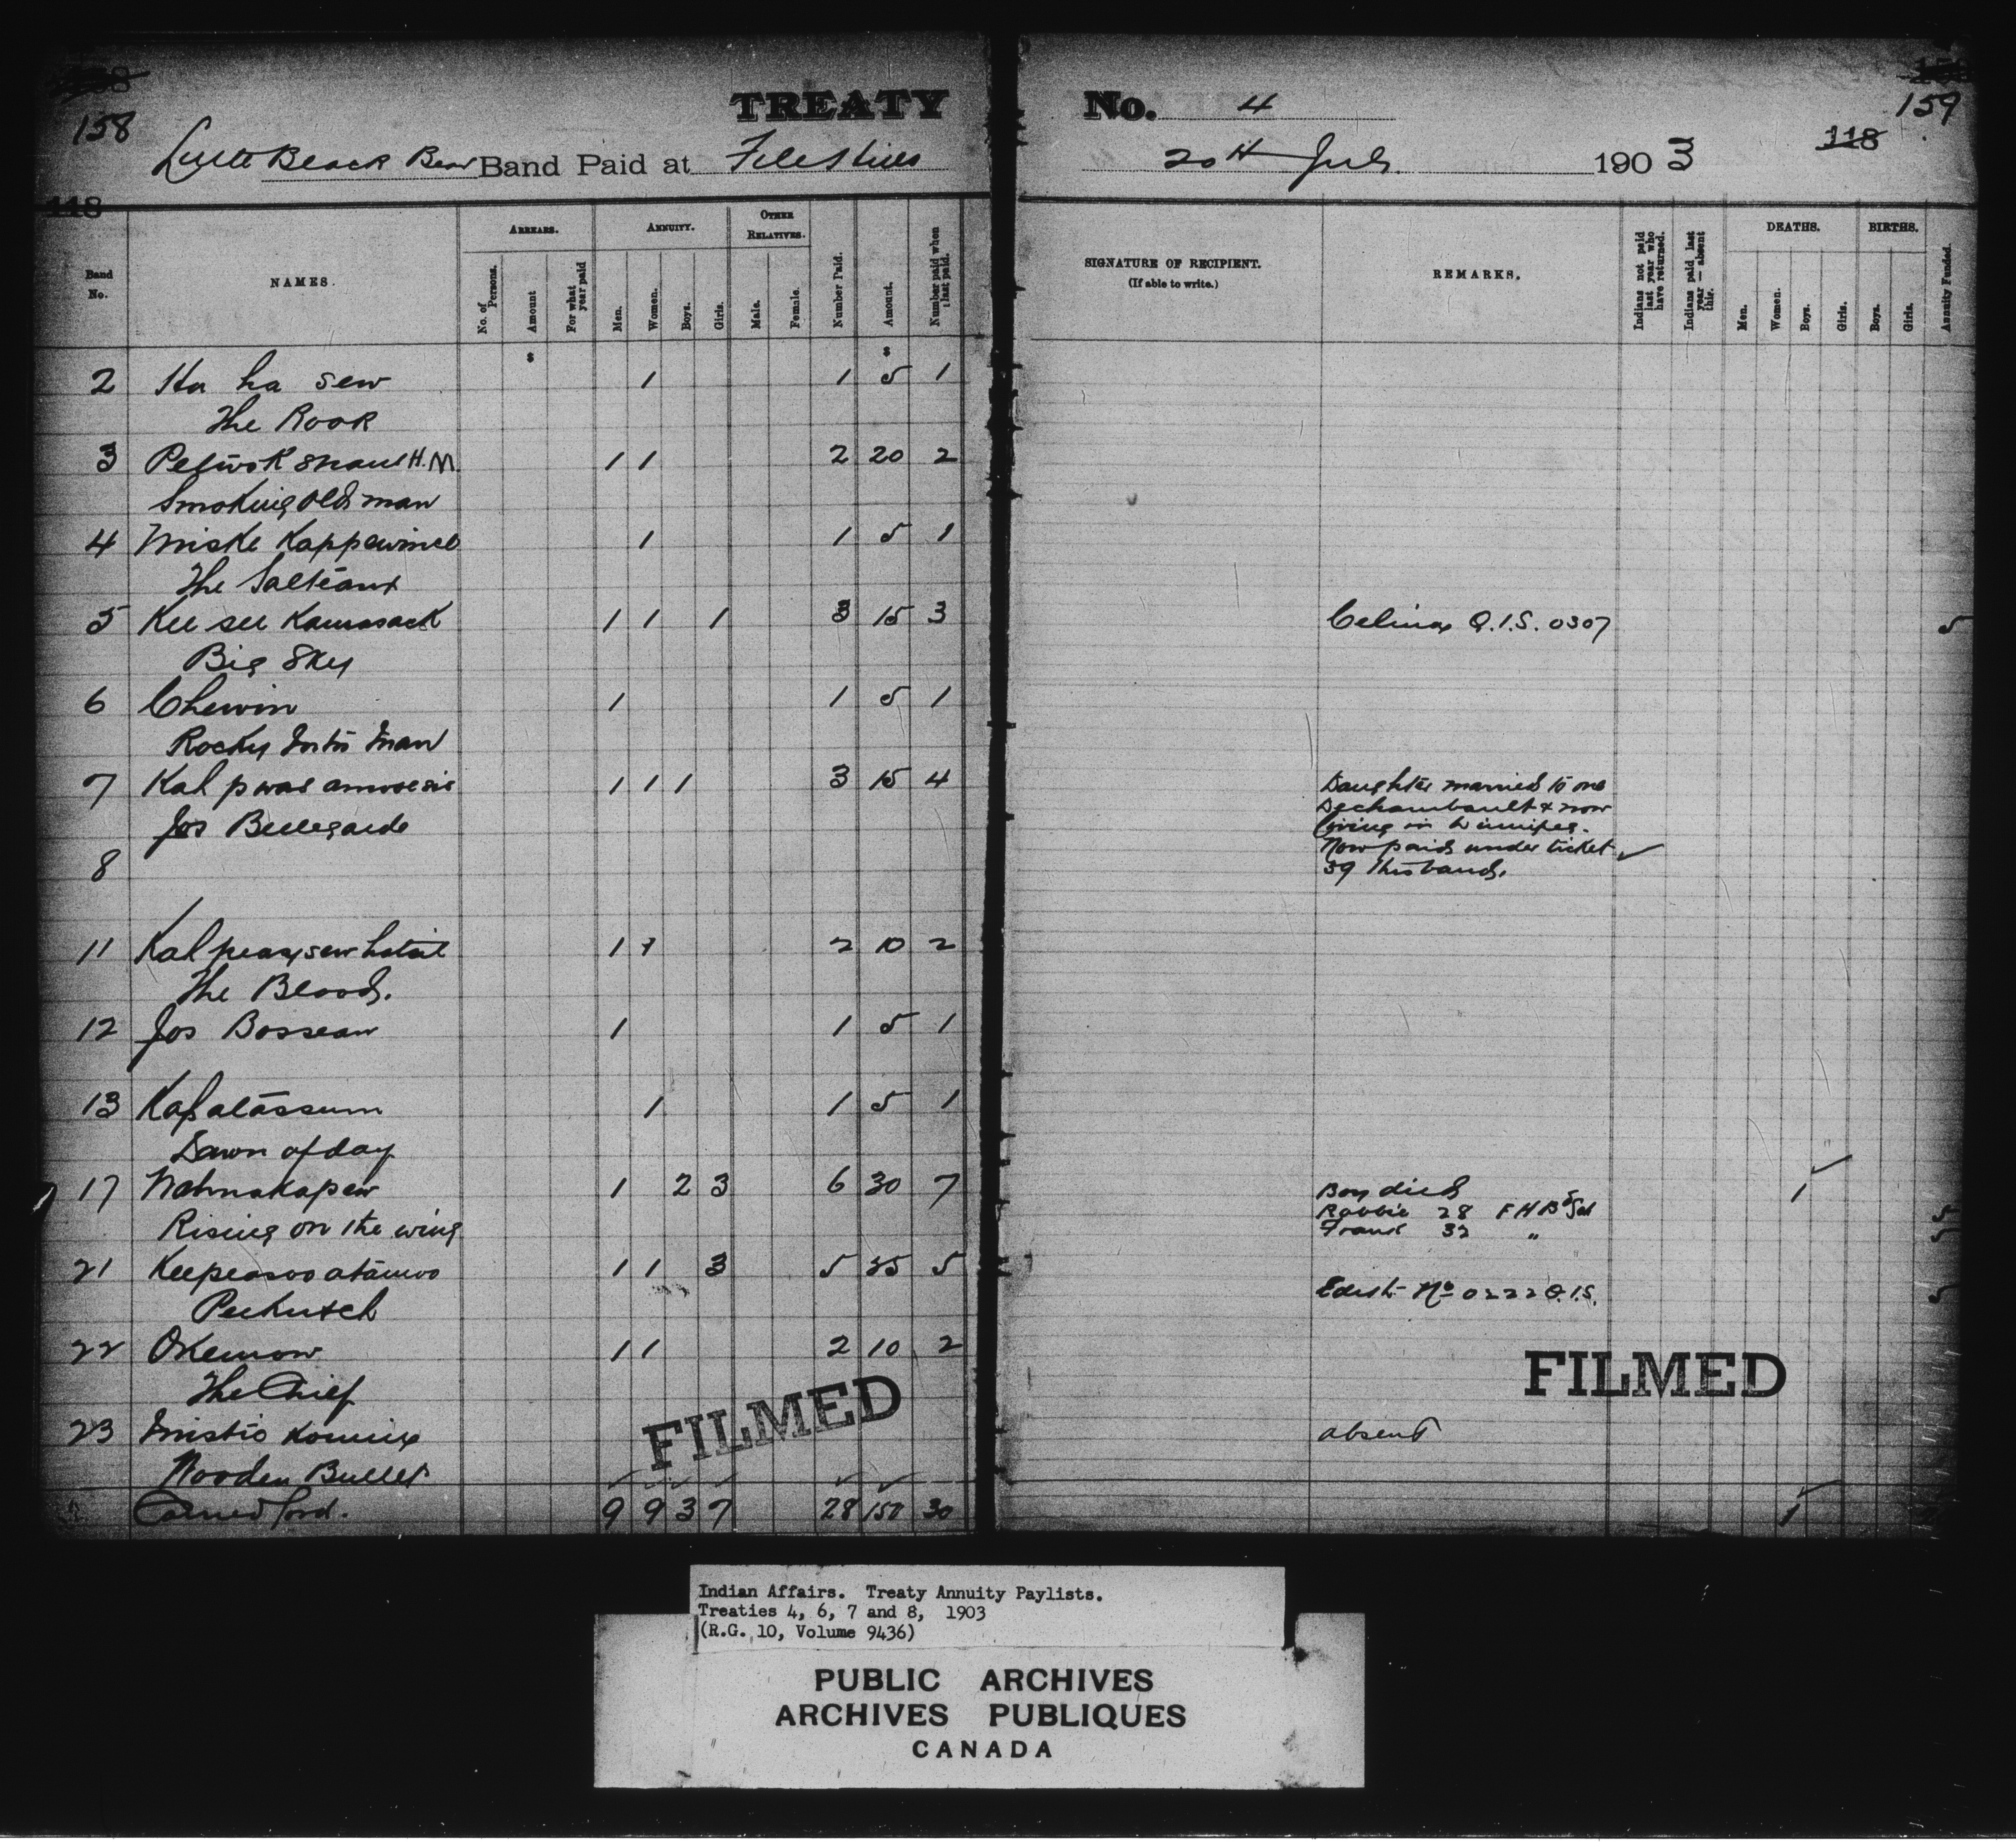 158
TREATY No. 4
159
118
Little Black Bear Band Paid at File Hills
20th July 1903
118
Band No.
NAMES.
ARREARS.
No. of Persons.
Amount
For what year paid
ANNUITY.
Men.
Women.
Boys.
Girls.
OTHER RELATIVES.
Male.
Female.
Number Paid.
Amount.
Number paid when last paid.
SIGNATURE OF RECIPIENT.
(If able to write.)
REMARKS.
Indians not paid last year who have returned.
Indians paid last year — absent this.
DEATHS.
Men.
Women.
Boys.
Girls.
BIRTHS.
Boys.
Girls.
Annuity Funded.
$ $
2 Ka ha sew 1 1 5 1
The Rook
3 H.M. 1 1 2 20 2
Smoking Old man
4 Miske Kappewinee 1 1 5 1
The Salteaux
5 Kee see Kamasack 1 1 1 3 15 3 Celina Q.I.S. 0307 5
Big Sky
6 Chewin 1 1 5 1
Rocky Man
7 Kah pwas amwesis 1 1 1 3 15 4 Daughter married to one
Dechambault & now
living in Winnipeg.
Jos Bellegarde
Now paid under ticket ✓
8 39 this band.
11 Kah peaysew hatait 1 1 2 10 2
The Blood.
12 Jos Bosseau 1 1 5 1
13 Kapatassum 1 1 5 1
Dawn of day
17 Nahnakapew 1 2 3 6 30 7 Boy died 1
Robbie 28 F H B Scl 5
Rising on the wing
Frank 32 " 5
21 Keepeasooatamoo 1 1 3 5 35 5
Peekutch
Edith No 0222 Q.I.S. 5
22 Okemow 1 1 2 10 2
The Chief
FILMED
FILMED
23 Mistic Komin absent
Wooden Bullet
Carried ford. 9 9 3 7 28 150 30 1
Indian Affairs. Treaty Annuity Paylists.
Treaties 4, 6, 7 and 8, 1903
(R.G. 10, Volume 9436)
PUBLIC ARCHIVES
ARCHIVES PUBLIQUES
CANADA